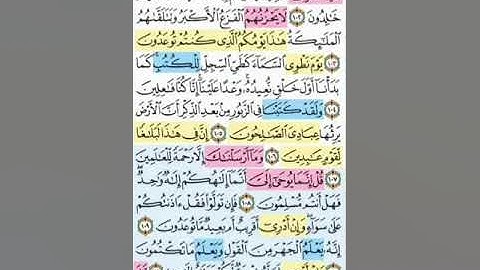 خَٰلِدُونَ ١٠٢ لَا يَحْزُنُهُمُ ٱلْفَزَعُ ٱلْأَكْبَرُ وَتَتَلَقَّىٰهُمُ
ٱلْمَلَٰٓئِكَةُ هَٰذَا يَوْمُكُمُ ٱلَّذِى كُنتُمْ تُوعَدُونَ
١٠٣ يَوْمَ نَطْوِى ٱلسَّمَآءَ كَطَىِّ ٱلسِّجِلِّ لِلْكُتُبِ كَمَا
بَدَأْنَآ أَوَّلَ خَلْقٍ نُّعِيدُهُۥ وَعْدًا عَلَيْنَآ إِنَّا كُنَّا فَٰعِلِينَ
١٠٤ وَلَقَدْ كَتَبْنَا فِى ٱلزَّبُورِ مِنۢ بَعْدِ ٱلذِّكْرِ أَنَّ ٱلْأَرْضَ
يَرِثُهَا عِبَادِىَ ٱلصَّٰلِحُونَ ١٠٥ إِنَّ فِى هَٰذَا لَبَلَٰغًا
لِّقَوْمٍ عَٰبِدِينَ ١٠٦ وَمَآ أَرْسَلْنَٰكَ إِلَّا رَحْمَةً لِّلْعَٰلَمِينَ
١٠٧ قُلْ إِنَّمَا يُوحَىٰٓ إِلَىَّ أَنَّمَآ إِلَٰهُكُمْ إِلَٰهٌ وَٰحِدٌ
فَهَلْ أَنتُم مُّسْلِمُونَ ١٠٨ فَإِن تَوَلَّوْا۟ فَقُلْ ءَاذَنتُكُمْ
عَلَىٰ سَوَآءٍ وَإِنْ أَدْرِىٓ أَقَرِيبٌ أَم بَعِيدٌ مَّا تُوعَدُونَ ١٠٩
إِنَّهُۥ يَعْلَمُ ٱلْجَهْرَ مِنَ ٱلْقَوْلِ وَيَعْلَمُ مَا تَكْتُمُونَ